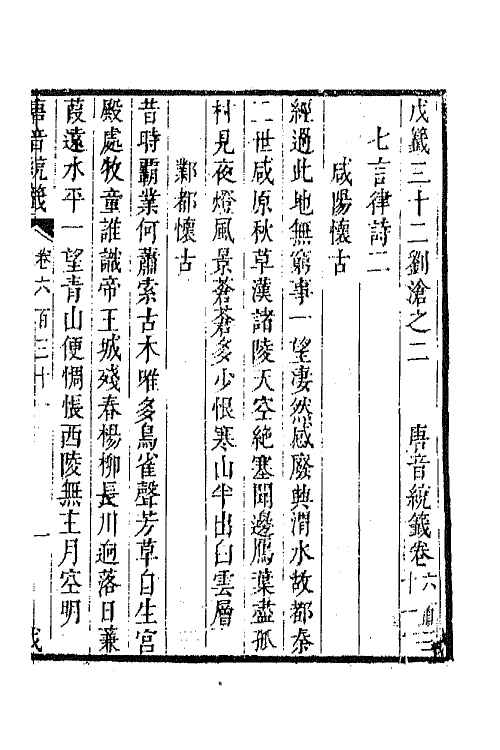 戊籖三十二劉滄之二　唐音統籖卷六百三十一
七言律詩二
咸陽懷古
經過此地無窮事一望淒然感廢興渭水故都秦
二世咸原秋草漢諸陵天空絶塞聞邊鴈葉盡孤
村見夜燈風景蒼蒼多少恨寒山半出白雲層
鄴都懷古
昔時霸業何蕭索古木唯多鳥雀聲芳草自生宮
殿處牧童誰識帝王城殘春楊柳長川迥落日蒹
葭遠水平一望青山便惆悵西陵無主月空明
唐音統籖　卷六百三十一　一　戊